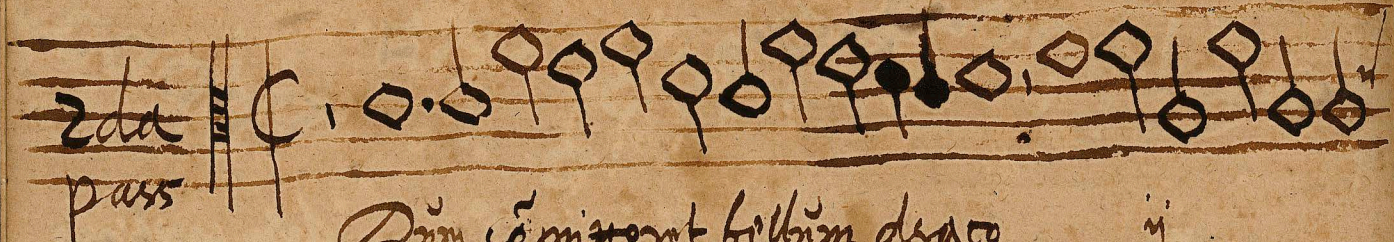 2da
pass
Dum cõmitteret bellum draco ij